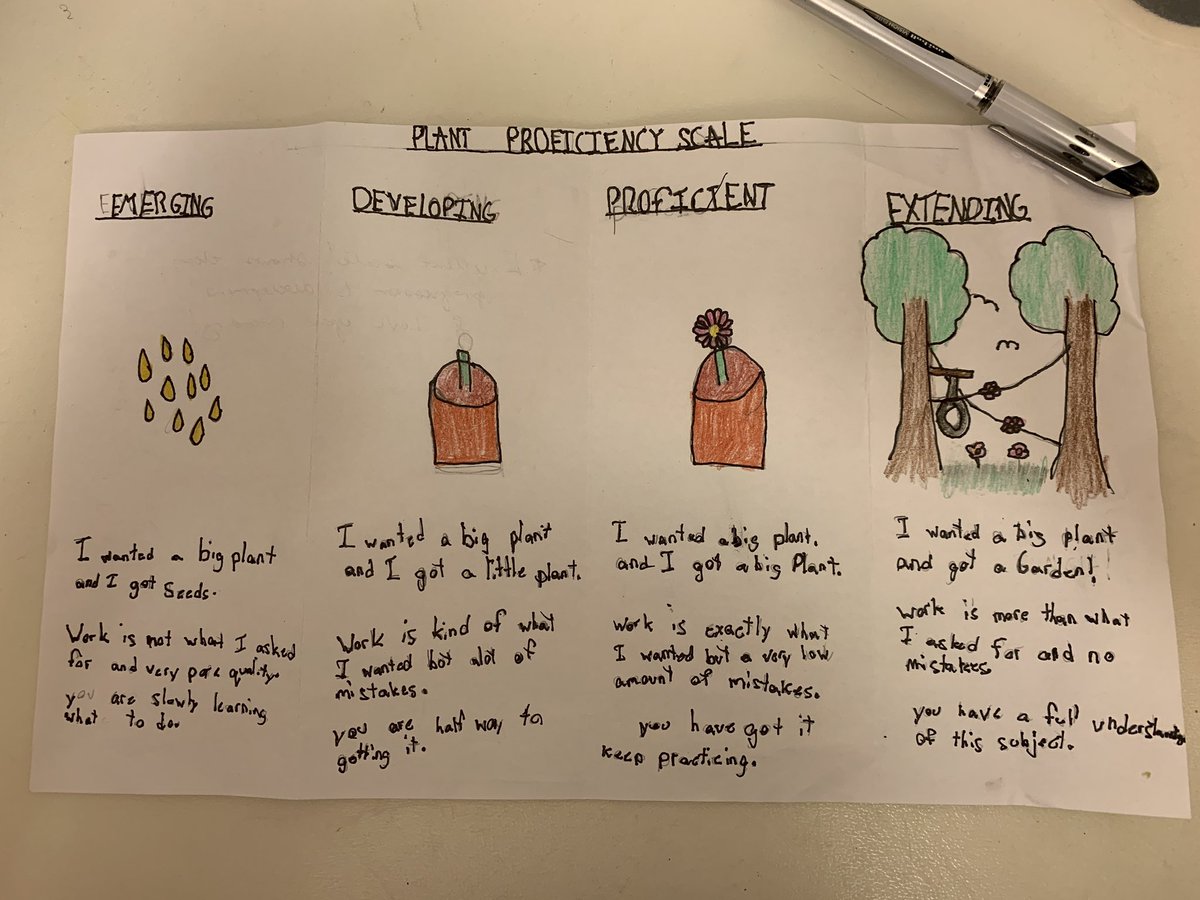 PLANT PROFICIENCY SCALE
EMERGING
I wanted a big plant
and I got Seeds.
Work is not what I asked
for and very pore quality.
you are slowly learning
what to do.
DEVELOPING
I wanted a big plant
and I got a little plant.
Work is kind of what
I wanted bot alot of
mistakes.
you are half way to
gotting it.
PROFICIENT
I wanted a big plant.
and I got a big Plant.
work is exactly what
I wanted but a very low
amount of mistakes.
you have got it
keep practicing.
EXTENDING
I wanted a big plant
and got a Garden!
work is more then what
I asked for and no
mistakes
you have a full understanding
of this subject.